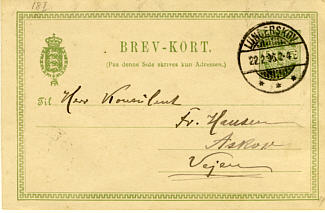 187
BREV-KORT.
(Paa denne Side skrives kun Adressen.)
LUNDERSKOV
22.2.96.2-4E
Til Herr Konsulent
Fr. Hansen
Askov
Vejen